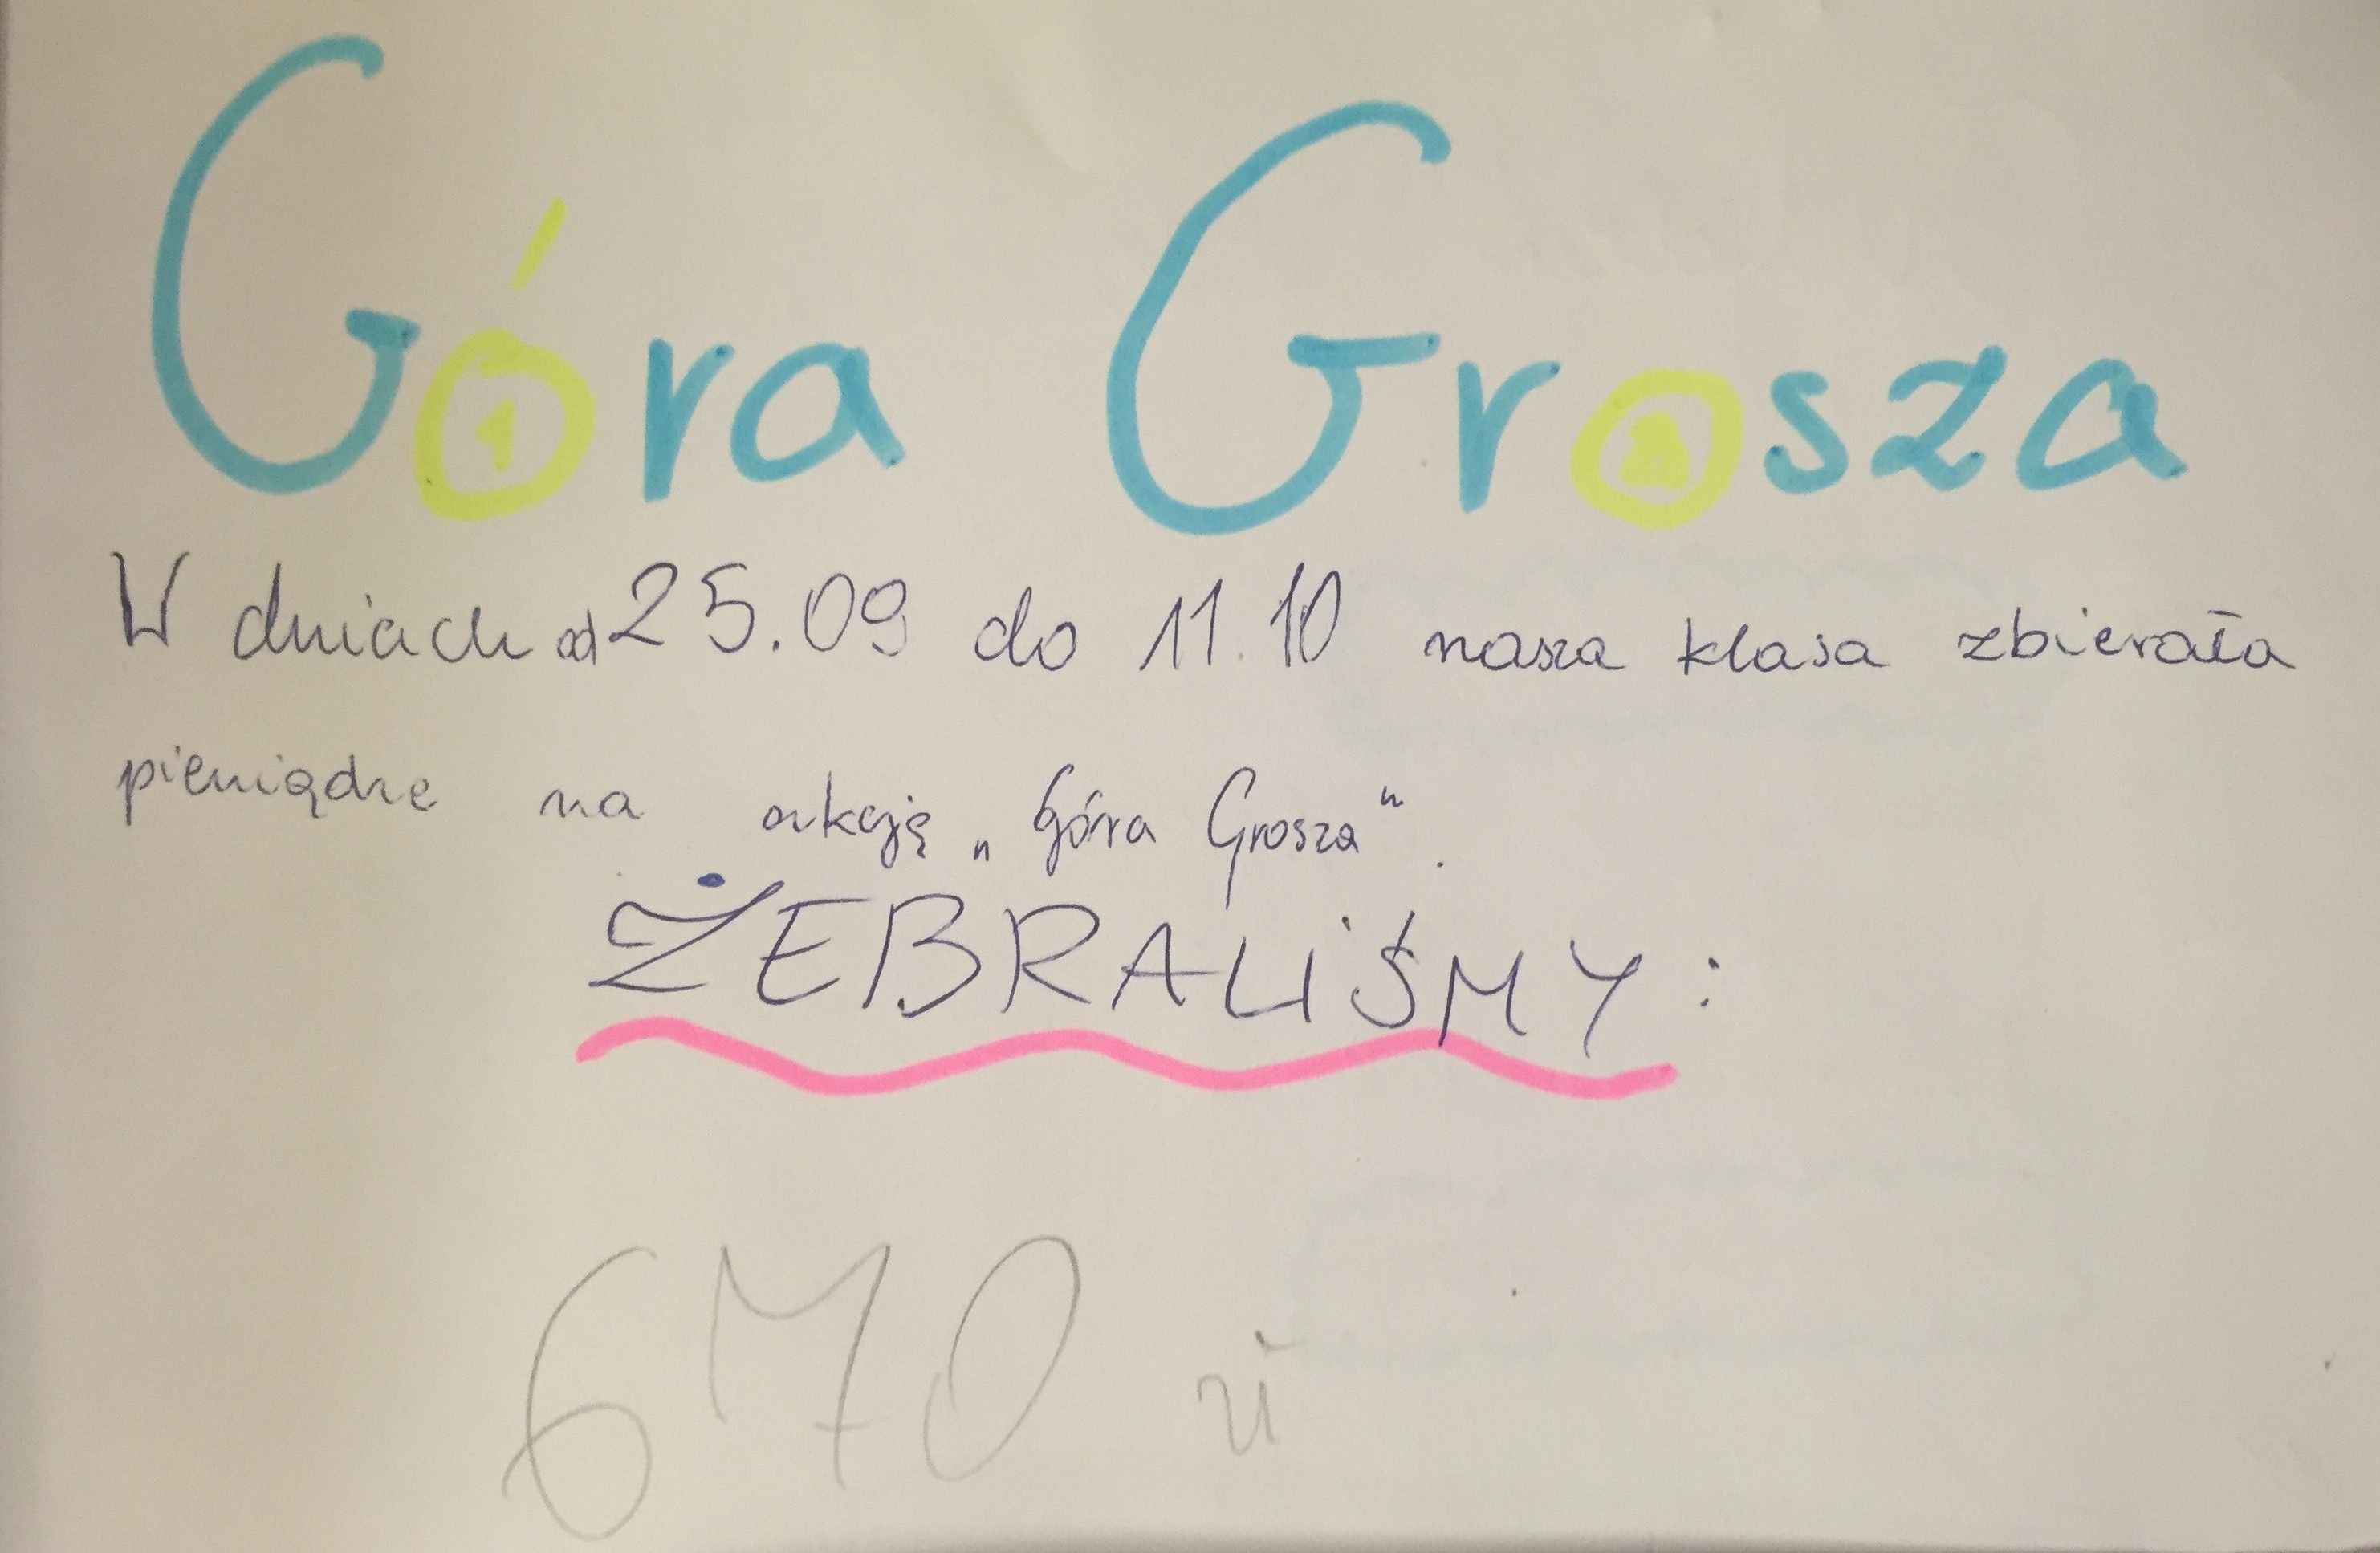 Góra Grosza
W dniach od 25.09 do 11.10 nasza klasa zbierała
pieniądze na akcję „Góra Grosza".
ŻEBRALIŚMY:
670 zł